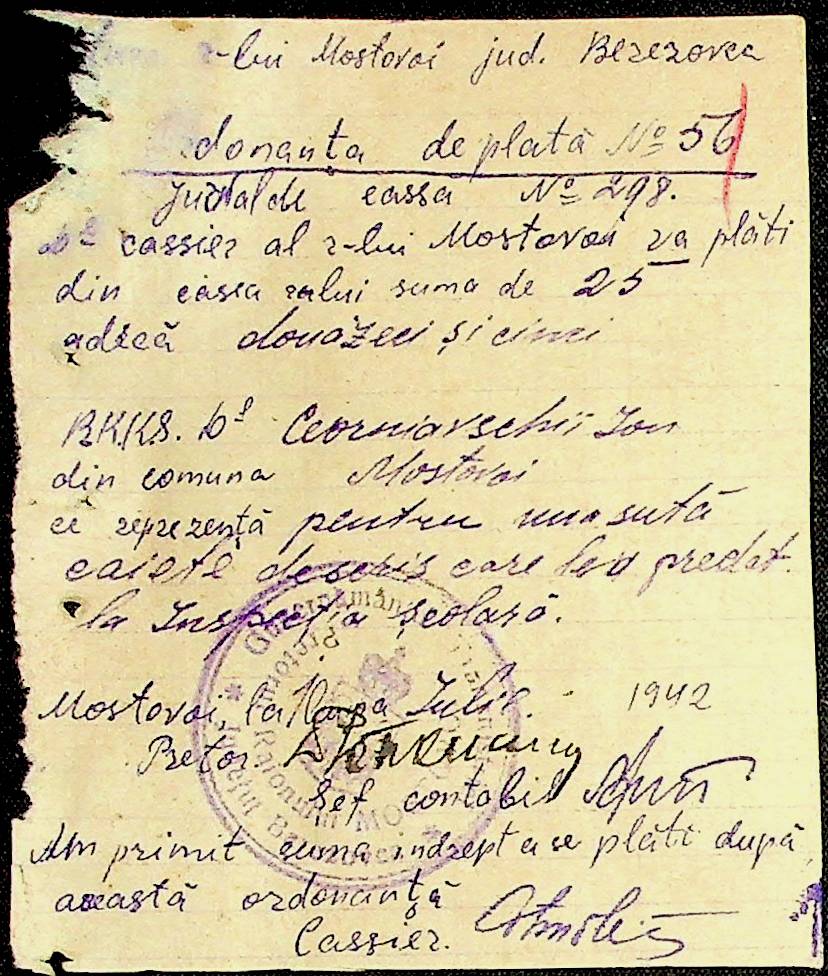 r-lui Mostovoi jud. Berezovca
donanța de plată № 56
Jurnal de cassa № 298.
Dl cassier al r-lui Mostovoi va plăti
din casia ralui suma de 25
adică douăzeci și cinci
RKKS. Dl Ceorniavschii Ion
din comuna Mostovoi
ce reprezență pentru una sută
caiete de scris care lea predat
la Inspecția școlară.
Mostovoi la Iulie 1942
Pretor
Șef contabil
Am primit suma indrept a se plăti după
această ordonanță
Cassier.